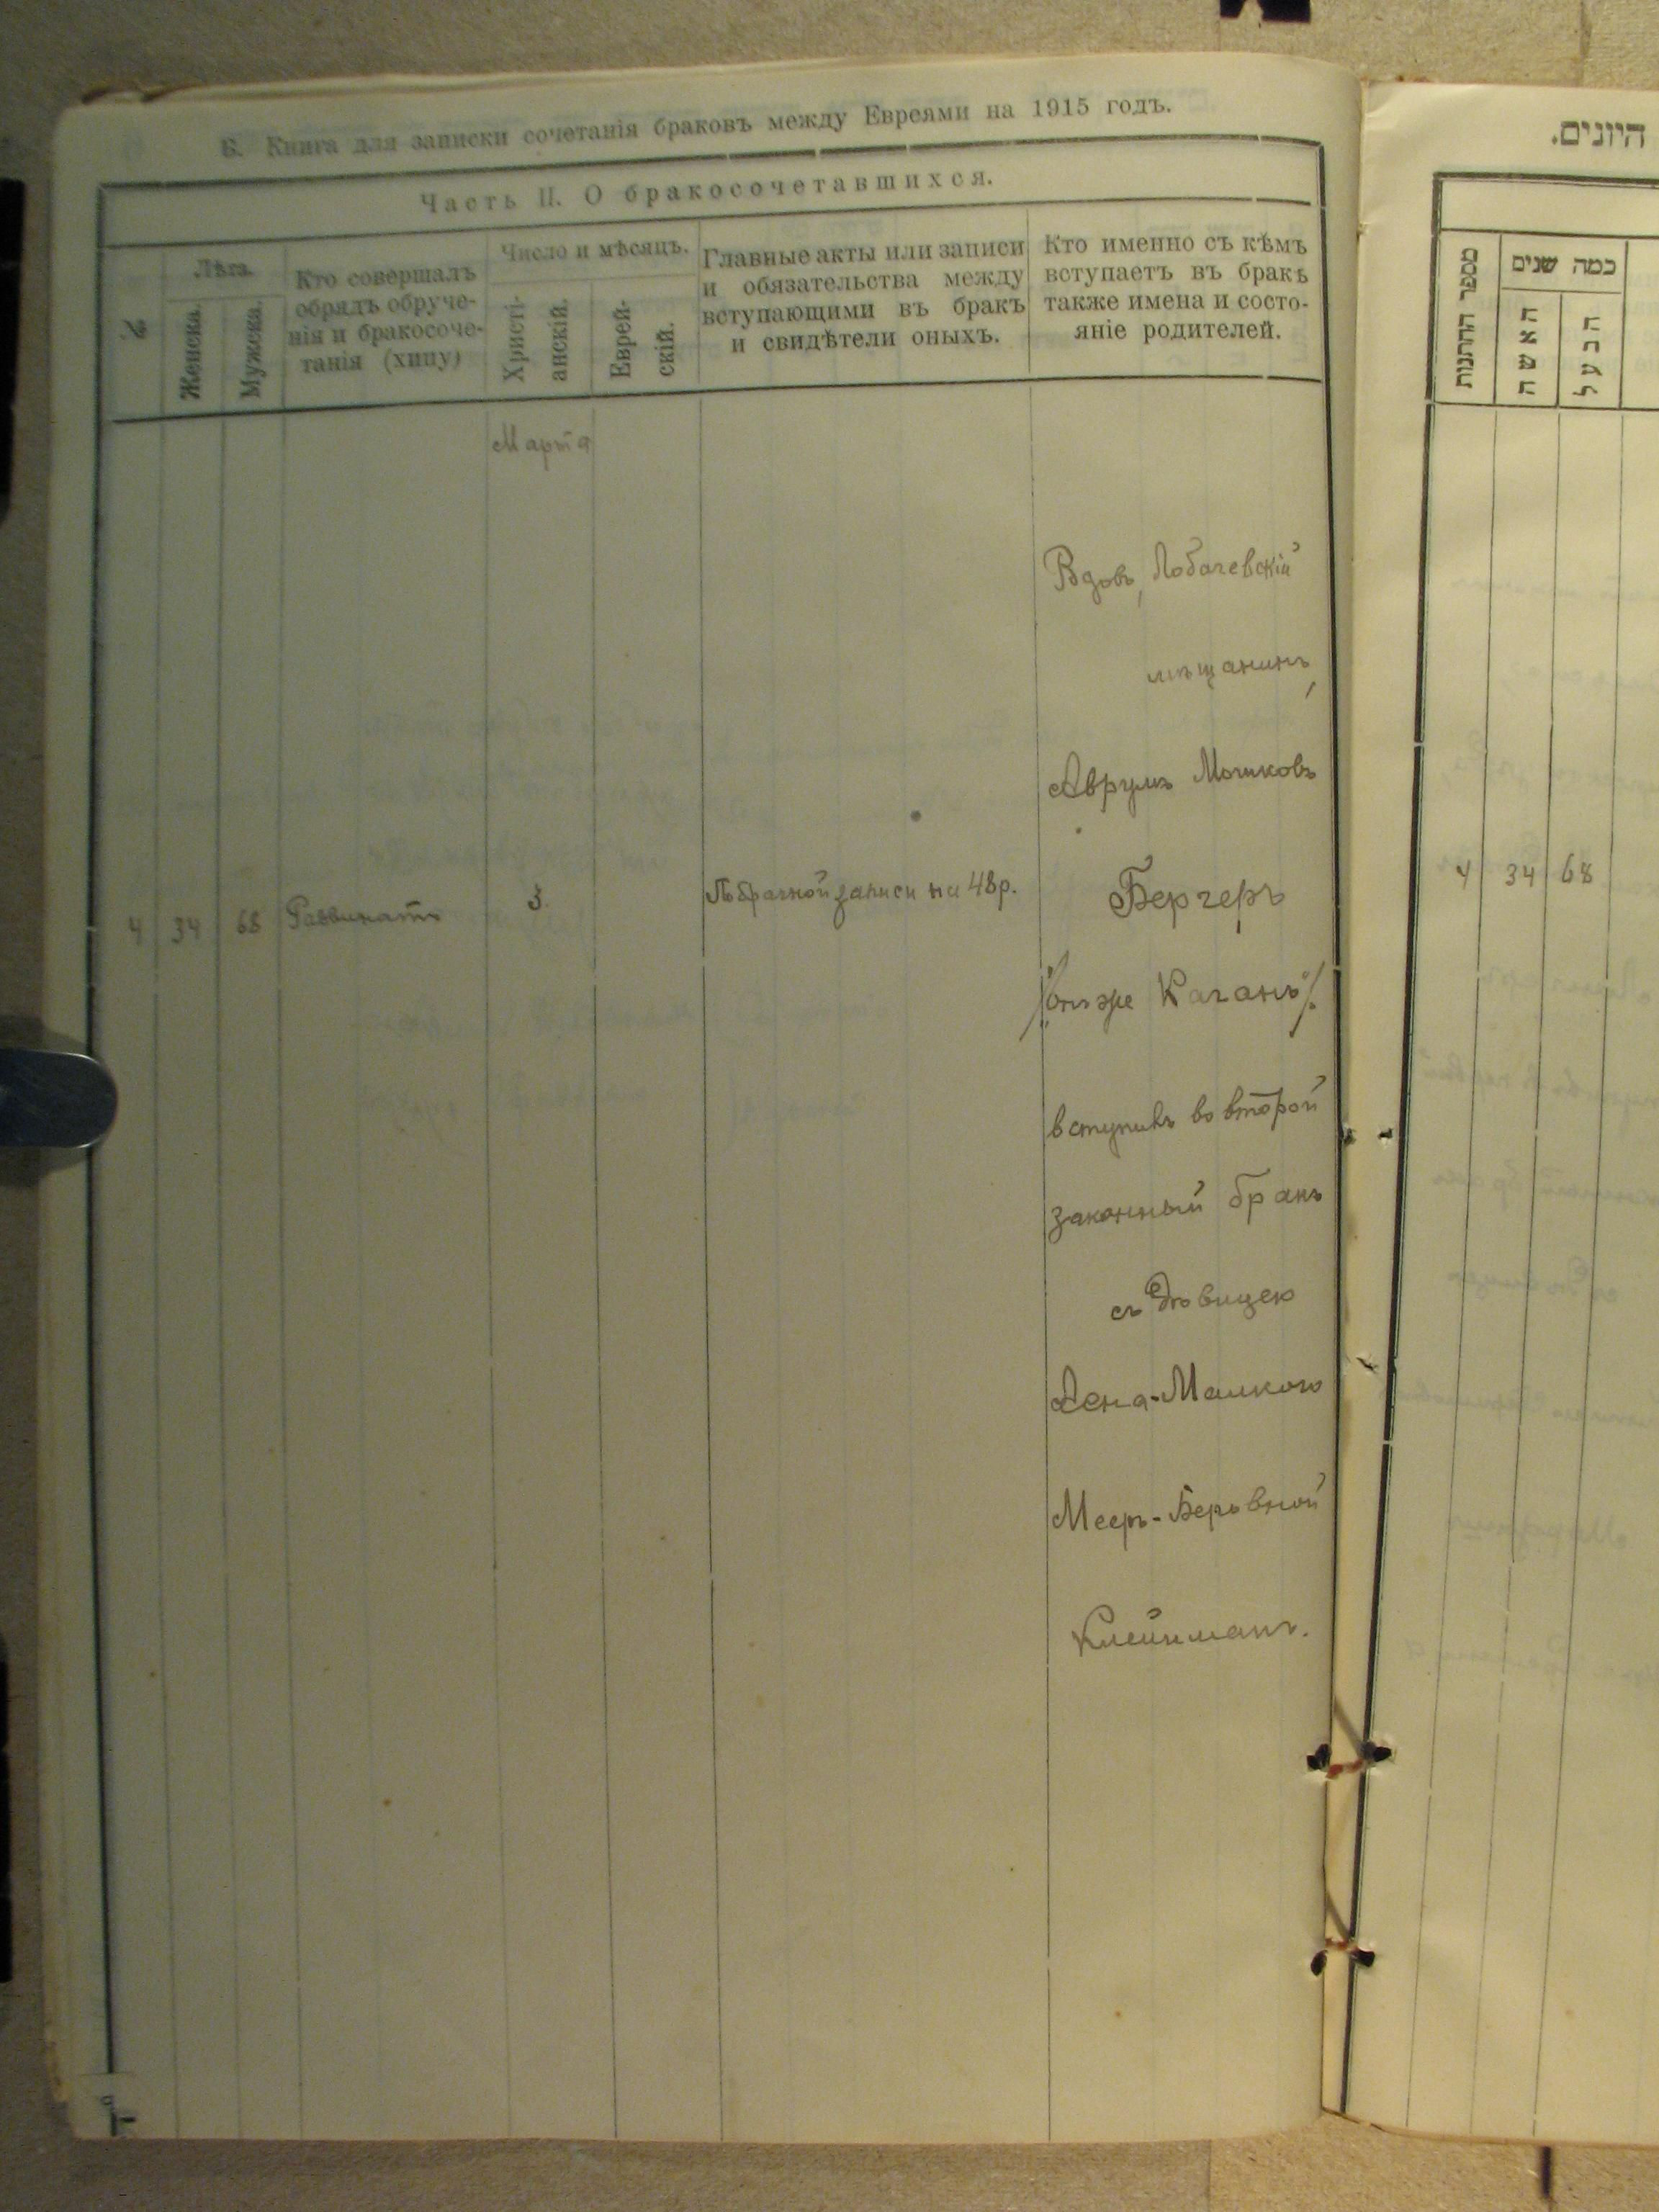 Б. Книга для записки сочетанія браковъ между Евреями на 1915 годъ.
Часть II. О бракосочетавшихся.
№
Лѣта.
Женска.
Мужеска.
Кто совершалъ
обрядъ обруче-
нія и бракосоче-
танія (хипу)
Число и мѣсяцъ.
Христі-
анскій.
Еврей-
скій.
Главные акты или записи
и обязательства между
вступающими въ бракъ
и свидѣтели оныхъ.
Кто именно съ кѣмъ
вступаетъ въ бракъ
также имена и состо-
яніе родителей.
Марта
4 34 68 Раввинатъ 3 брачной записи на 48 р.
Вдовъ, Лобачевскій
мѣщанинъ,
Аврумъ Мошковъ
Бергеръ
/„онъ же Каганъ“/.
вступилъ во второй
законный бракъ
съ Дѣвицею
Мееръ-Беровной
Клейманъ.
היונים.
מספר החתונות
כמה שנים
האשה
הבעל
4 34 68